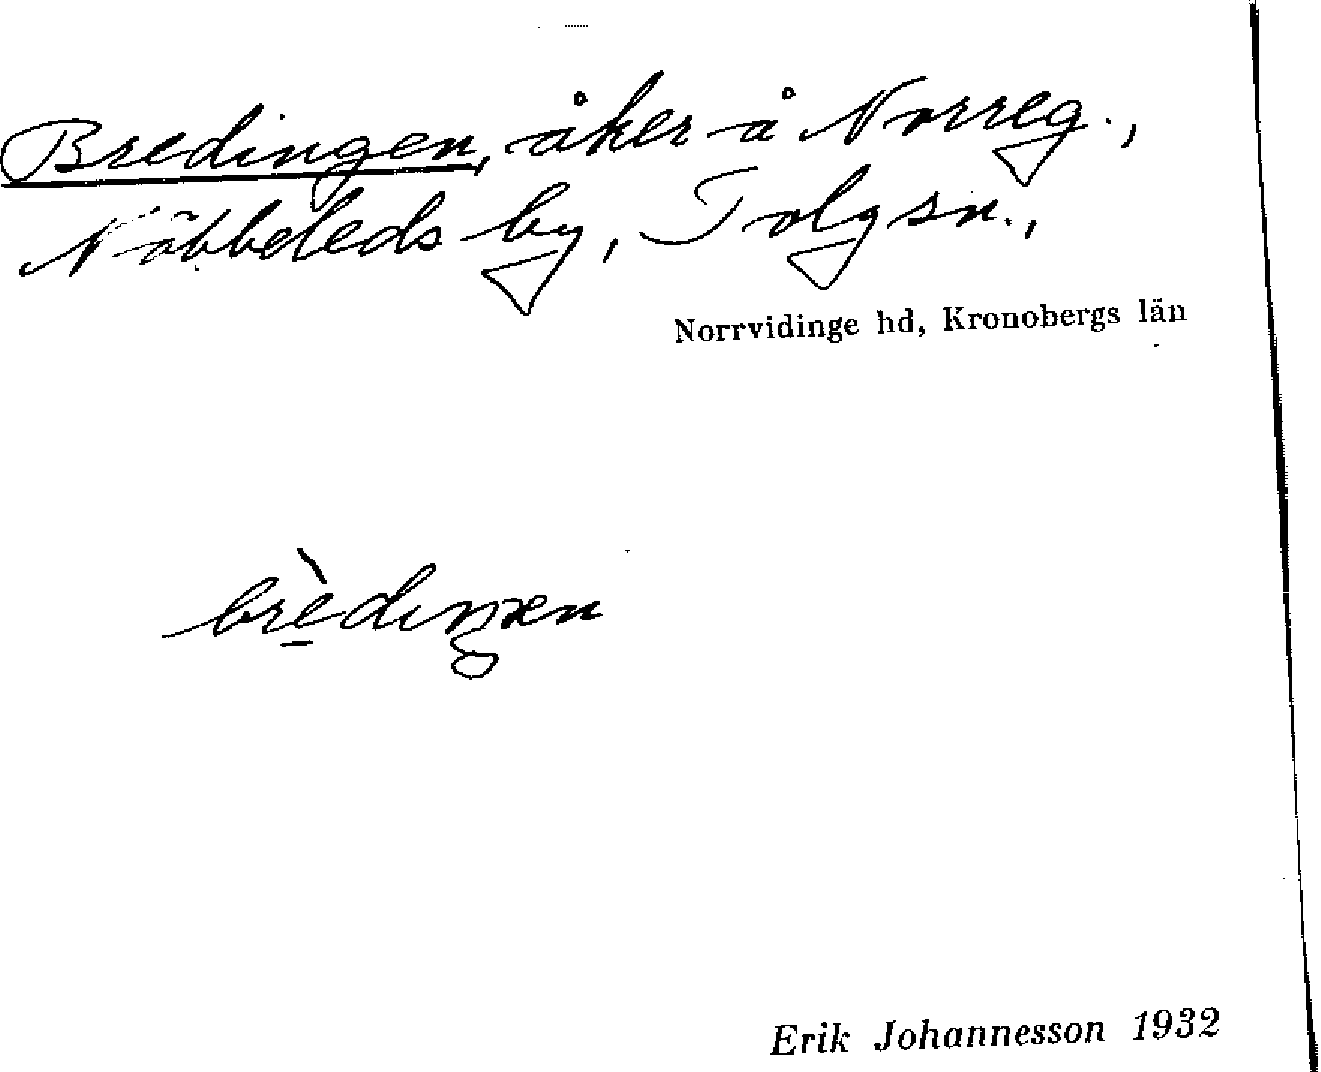 Bredingen, åker å Norreg.,
Nöbbeleds by, Tolg sn.,
Norrvidinge hd, Kronobergs län
brèdiŋen
Erik Johannesson 1932